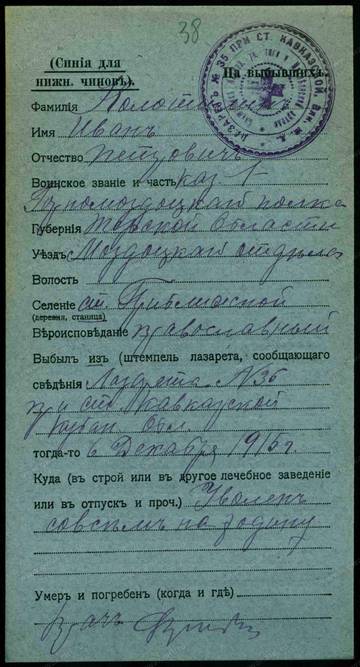 38
(Синія для
нижн. чиновъ).
На выбывшихъ.
Фамилія
Имя Иванъ
Отчество Петровичъ
Воинское званіе и часть каз. 1
Горномоздоцкаго полка
Губернія Терской Области
Уѣздъ Моздоцкаго отдѣла
Волость
Селеніе ст. Приближной
(деревня, станица)
Вѣроисповѣданіе православный
Выбылъ изъ (штемпель лазарета, сообщающаго
свѣдѣнія Лазарета №35
при ст. Кавказской
Кубан. Обл.
тогда-то 6 Декабря 1915 г.
Куда (въ строй или въ другое лечебное заведеніе
или въ отпускъ и проч.) Уволенъ
совсѣмъ на родину
Умеръ и погребенъ (когда и гдѣ)
Врачъ